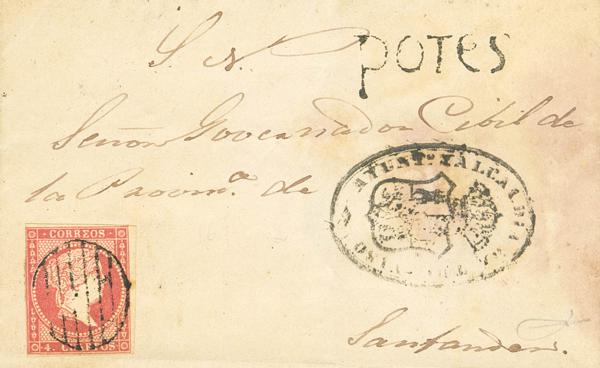 S. N.
POTES
Señor Goocernador Cibil de
la Provin.ª de
AYUNT.º Y ALCALDIA
CORREOS
4. CUARTOS
Santander.